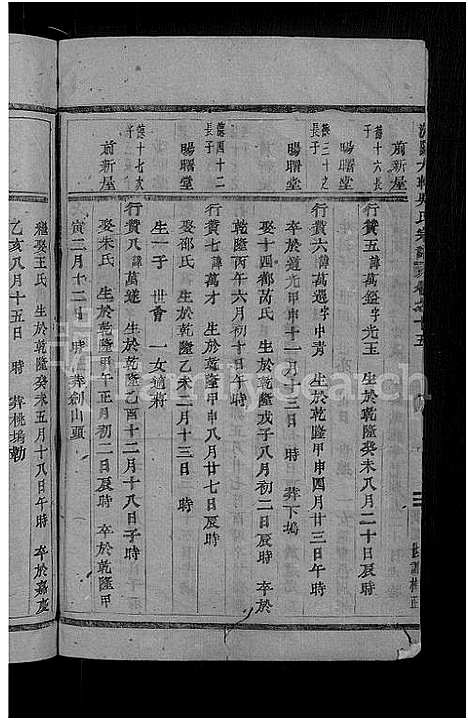 德十六長
子
前新屋
行贊五諱萬鐙字光玉 生於乾隆癸未八月二十日辰時
德三十之
長子
暘曙堂
行贊六諱萬選字中青 生於乾隆甲申四月廿三日午時
卒於道光甲申十一月十三日 時 葬下塢
娶十四都葛氏 生於乾隆戊子八月初二日辰時 卒於
乾隆丙午六月初十日午時
德四十二
長子
暘曙堂
行贊七諱萬才 生於乾隆甲申八月廿七日辰時
娶邵氏 生於乾隆乙未三月十三日 時
生一子 世會 一女適蔣
德十七次
子
前新屋
行贊八諱萬遂 生於乾隆乙酉十二月十八日子時
娶朱氏 生於乾隆甲午正月初二日辰時 卒於乾隆甲
寅二月十二日 時 葬劍山頭
繼娶王氏 生於乾隆癸未五月十八日午時 卒於嘉慶
乙亥八月十五日 時 葬桃塢勘